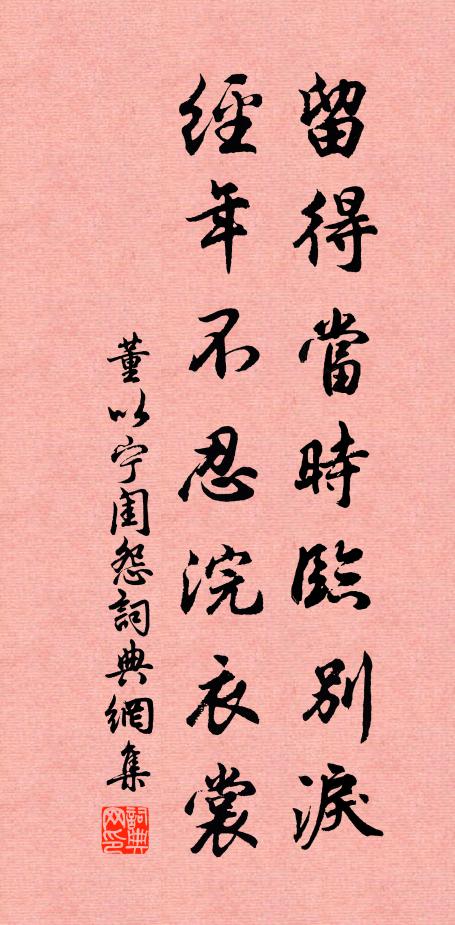 留得當時臨別淚
經年不忍浣衣裳
董以宁閨怨詞典網集
詞典网印